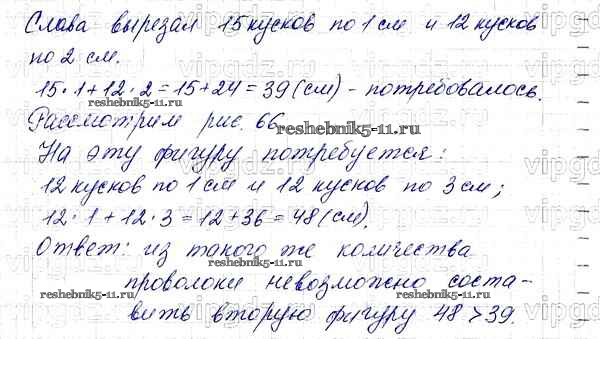 Слава вырезал 15 кусков по 1 см и 12 кусков
по 2 см.
15·1+12·2=15+24=39(см) - потребовалось.
reshebnik5-11.ru
Рассмотрим рис. 66
reshebnik5-11.ru
На эту фигуру потребуется:
12 кусков по 1 см и 12 кусков по 3 см;
12·1+12·3=12+36=48(см).
Ответ: из такого же количества
проволоки невозможно соста-
reshebnik5-11.ru
reshebnik5-11.ru
вить вторую фигуру 48 > 39.